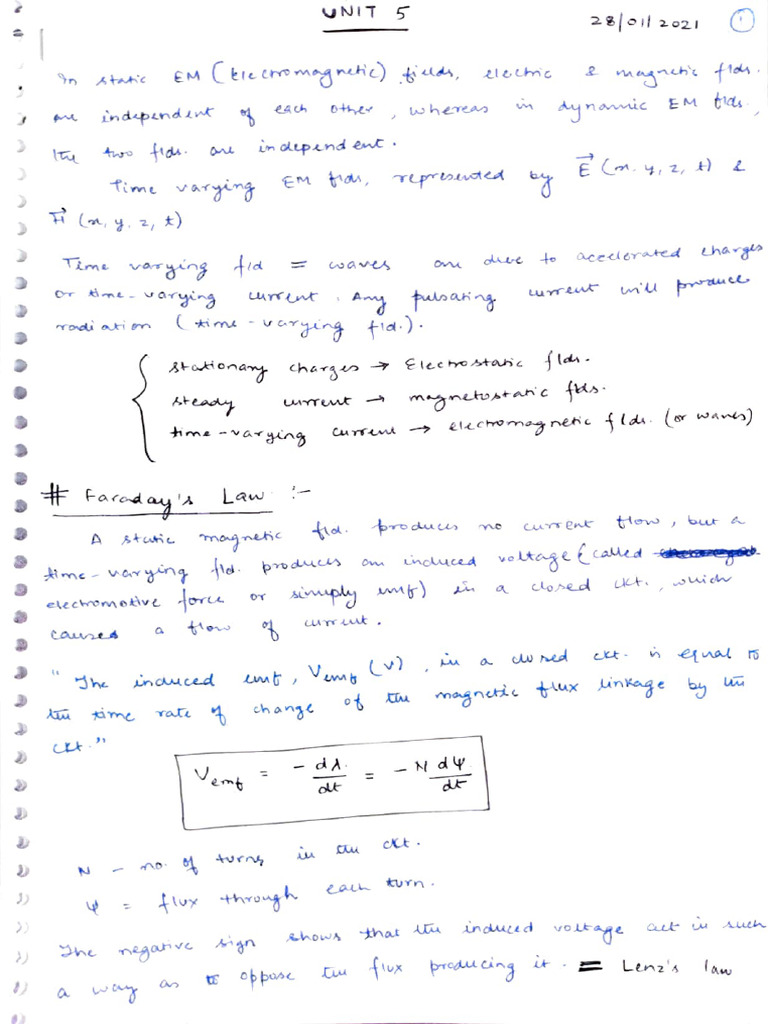 UNIT 5
28/01/2021 1
In static EM (Electromagnetic) fields, electric & magnetic flds.
are independent of each other, whereas in dynamic EM flds,
the two flds. are independent.
Time varying EM flds, represented by E⃗ (x, y, z, t) &
H⃗ (x, y, z, t)
Time varying fld = waves are due to accelerated charges
or time-varying current. Any pulsating current will produce
radiation (time-varying fld.).
{ stationary charges → Electrostatic flds.
steady current → magnetostatic flds.
time-varying current → electromagnetic flds. (or waves)
# Faraday's Law :-
A static magnetic fld. produces no current flow, but a
time-varying fld. produces an induced voltage (called
electromotive force or simply emf) in a closed ckt., which
causes a flow of current.
"The induced emf, Vemf (V), in a closed ckt. is equal to
the time rate of change of the magnetic flux linkage by the
ckt."
Vemf = - dλ/dt = - N dψ/dt
N - no. of turns in the ckt.
ψ = flux through each turn.
The negative sign shows that the induced voltage act in such
a way as to oppose the flux producing it. = Lenz's law